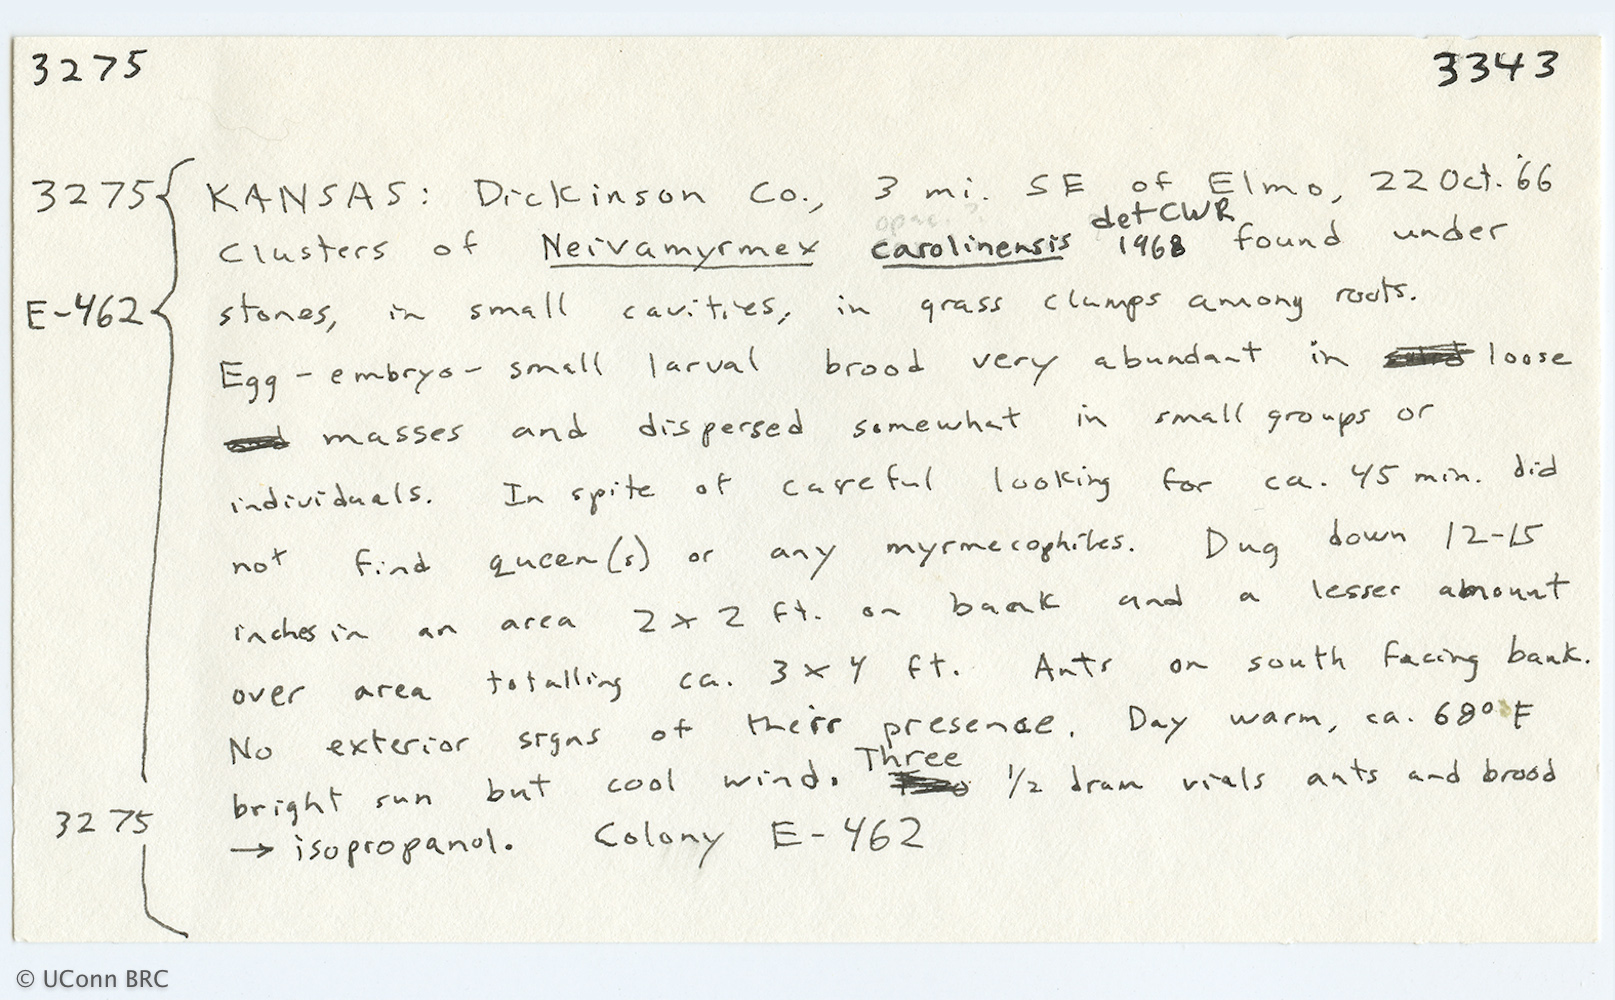 3275 3343
3275 KANSAS: Dickinson Co., 3 mi. SE of Elmo, 22 Oct. '66
det CWR
Clusters of Neivamyrmex carolinensis 1968 found under
E-462 stones, in small cavities, in grass clumps among roots.
Egg - embryo - small larval brood very abundant in loose
masses and dispersed somewhat in small groups or
individuals. In spite of careful looking for ca. 45 min. did
not find queen(s) or any myrmecophiles. Dug down 12-15
inches in an area 2 x 2 ft. on bank and a lesser amount
over area totalling ca. 3 x 4 ft. Ants on south facing bank.
No exterior signs of their presence. Day warm, ca. 68° F
Three
bright sun but cool wind. 1/2 dram vials ants and brood
3275 → isopropanol. Colony E-462
© UConn BRC